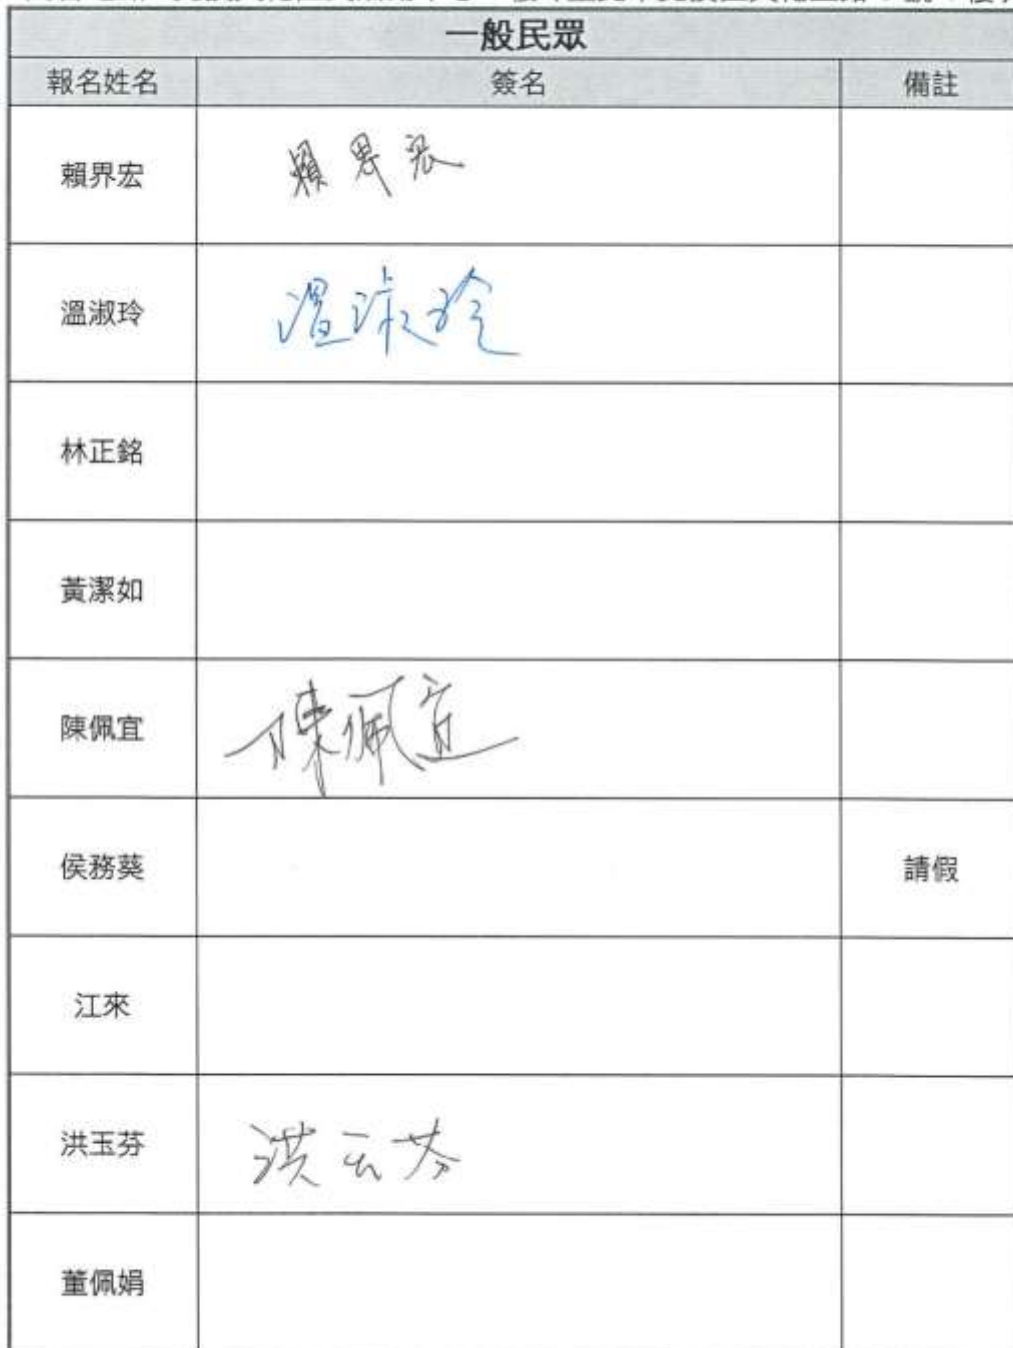 一般民眾
報名姓名 簽名 備註
賴界宏 賴界宏
溫淑玲 溫淑玲
林正銘
黃潔如
陳佩宜 陳佩宜
侯務葵 請假
江來
洪玉芬 洪玉芬
董佩娟